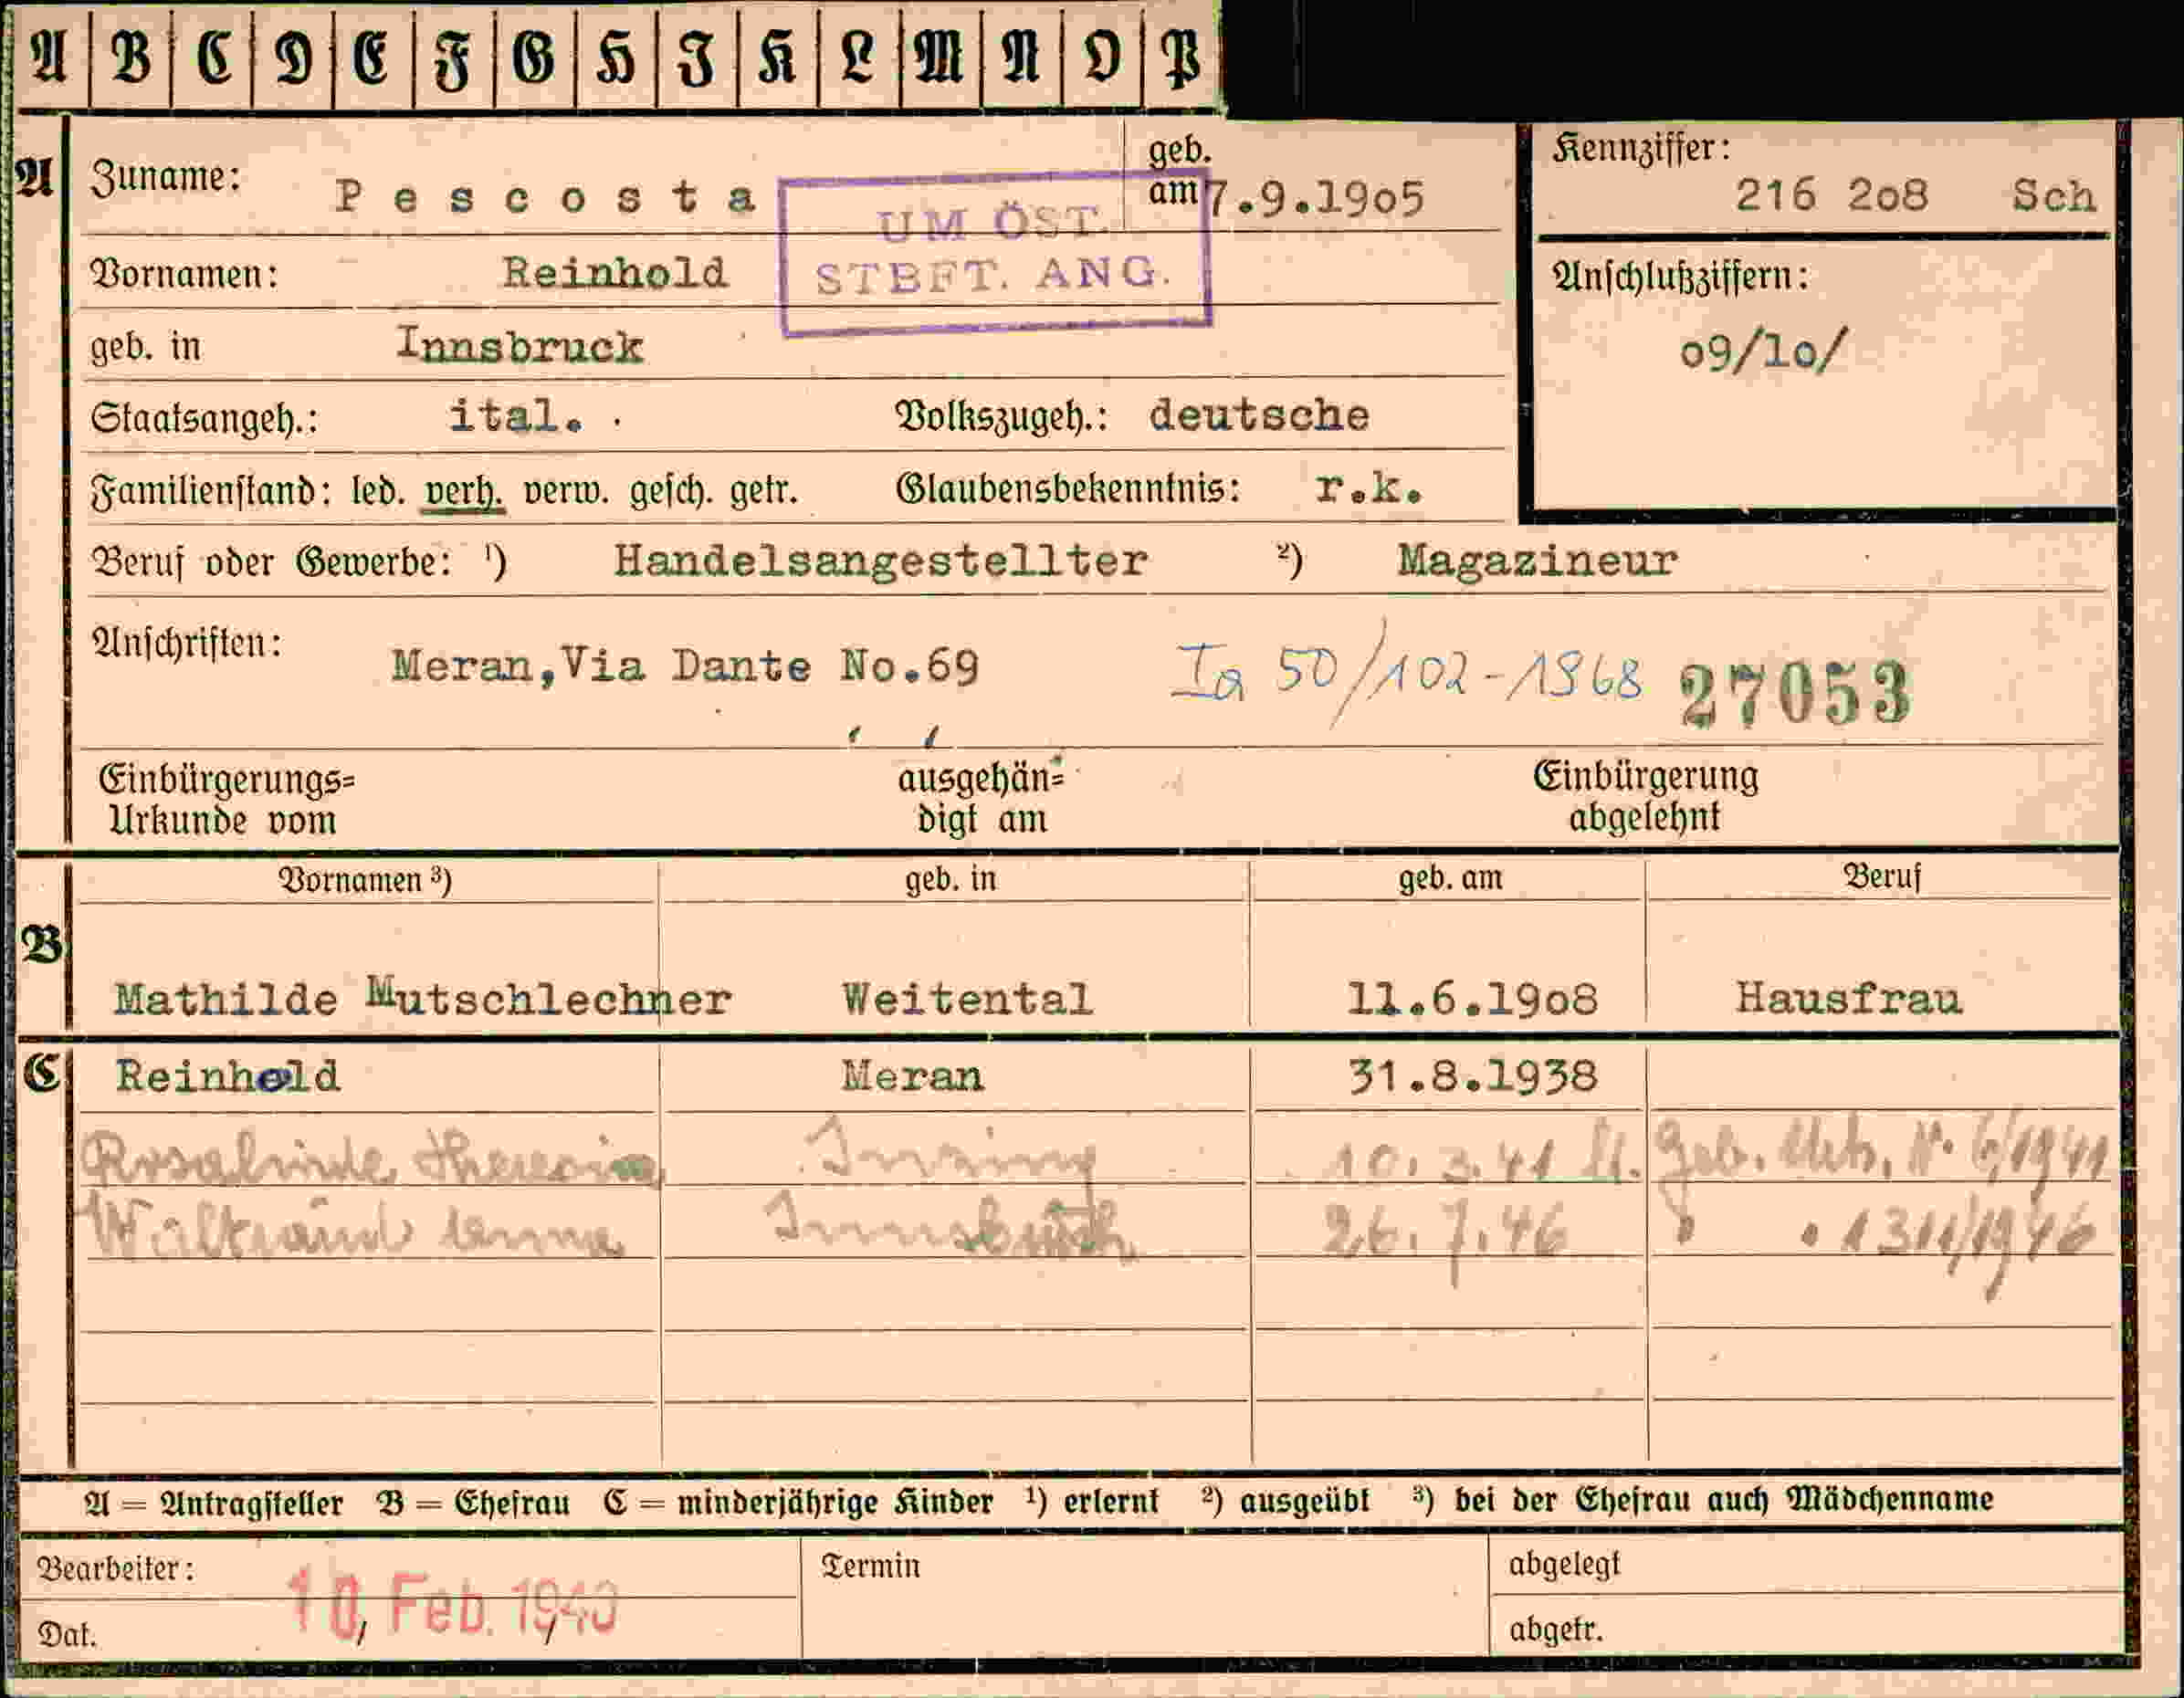 A B C D E F G H I K L M N O P
A Zuname: Pescosta geb. am 7.9.19o5 Kennziffer: 216 2o8 Sch
UM ÖST. STBFT. ANG.
Vornamen: Reinhold Anschlußziffern:
geb. in Innsbruck o9/1o/
Staatsangeh.: ital. . Volkszugeh.: deutsche
Familienstand: led. verh. verw. gesch. getr. Glaubensbekenntnis: r.k.
Beruf oder Gewerbe: ¹) Handelsangestellter ²) Magazineur
Anschriften: Meran,Via Dante No.69 Ia 50/102-1968 27053
Einbürgerungs= ausgehän= Einbürgerung
Urkunde vom digt am abgelehnt
Vornamen ³) geb. in geb. am Beruf
B Mathilde Mutschlechner Weitental 11.6.19o8 Hausfrau
C Reinhold Meran 31.8.1938
Rosalinde Theresia 10.3.41 Geb. Urk. N. 6/1941
Waltraud Innsbruck 26.7.46
A = Antragsteller B = Ehefrau C = minderjährige Kinder ¹) erlernt ²) ausgeübt ³) bei der Ehefrau auch Mädchenname
Bearbeiter: Termin abgelegt
10 Feb. 1940
Dat. abgetr.